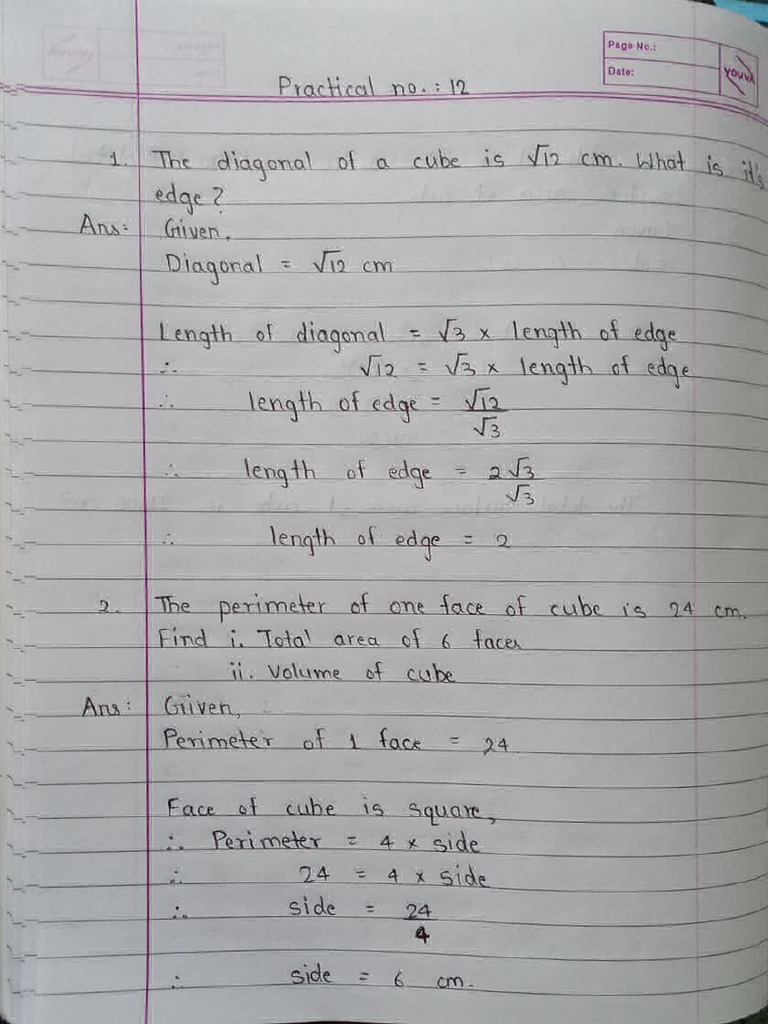 Page No.:
Date:
youva
Practical no.: 12
1. The diagonal of a cube is √12 cm. What is it's
edge?
Ans: Given,
Diagonal = √12 cm
Length of diagonal = √3 × length of edge
∴ √12 = √3 × length of edge
∴ length of edge = √12
√3
∴ length of edge = 2√3
√3
∴ length of edge = 2
2. The perimeter of one face of cube is 24 cm.
Find i. Total area of 6 faces
ii. Volume of cube
Ans: Given,
Perimeter of 1 face = 24
Face of cube is square,
∴ Perimeter = 4 × side
∴ 24 = 4 × side
∴ side = 24
4
∴ side = 6 cm.